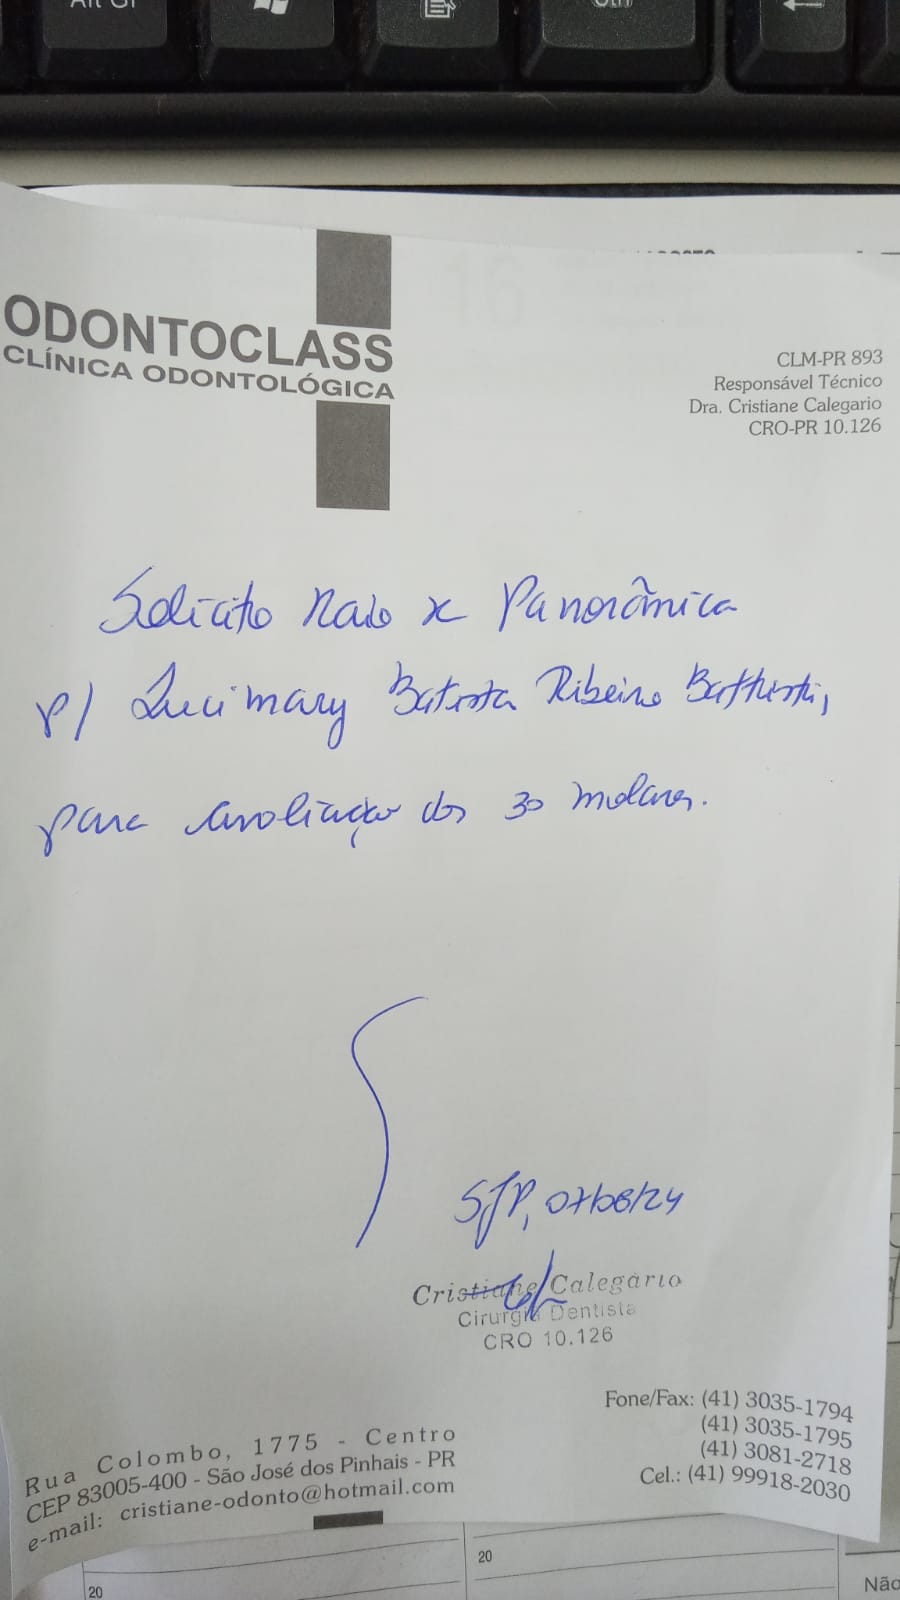 Alt Gr
Ctrl
ODONTOCLASS
CLÍNICA ODONTOLÓGICA
CLM-PR 893
Responsável Técnico
Dra. Cristiane Calegario
CRO-PR 10.126
Solicito Raio x Panorâmica
p/ Lucimary Batista Ribeiro Battisti,
para avaliação dos 3o molares.
SJP, 07/08/24
Cristiane Calegário
Cirurgiã Dentista
CRO 10.126
Fone/Fax: (41) 3035-1794
(41) 3035-1795
(41) 3081-2718
Cel.: (41) 99918-2030
Rua Colombo, 1775 - Centro
CEP 83005-400 - São José dos Pinhais - PR
e-mail: cristiane-odonto@hotmail.com
20
20
Não